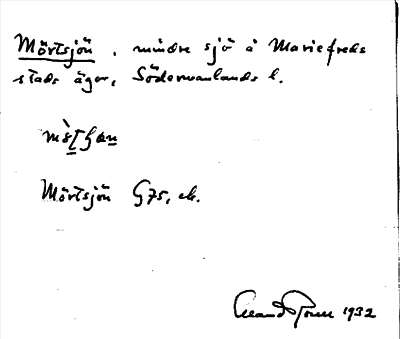 Mörtsjön, mindre sjö å Mariefreds
stads ägor, Södermanlands l.
Mörtsjön G75, ek.
1932